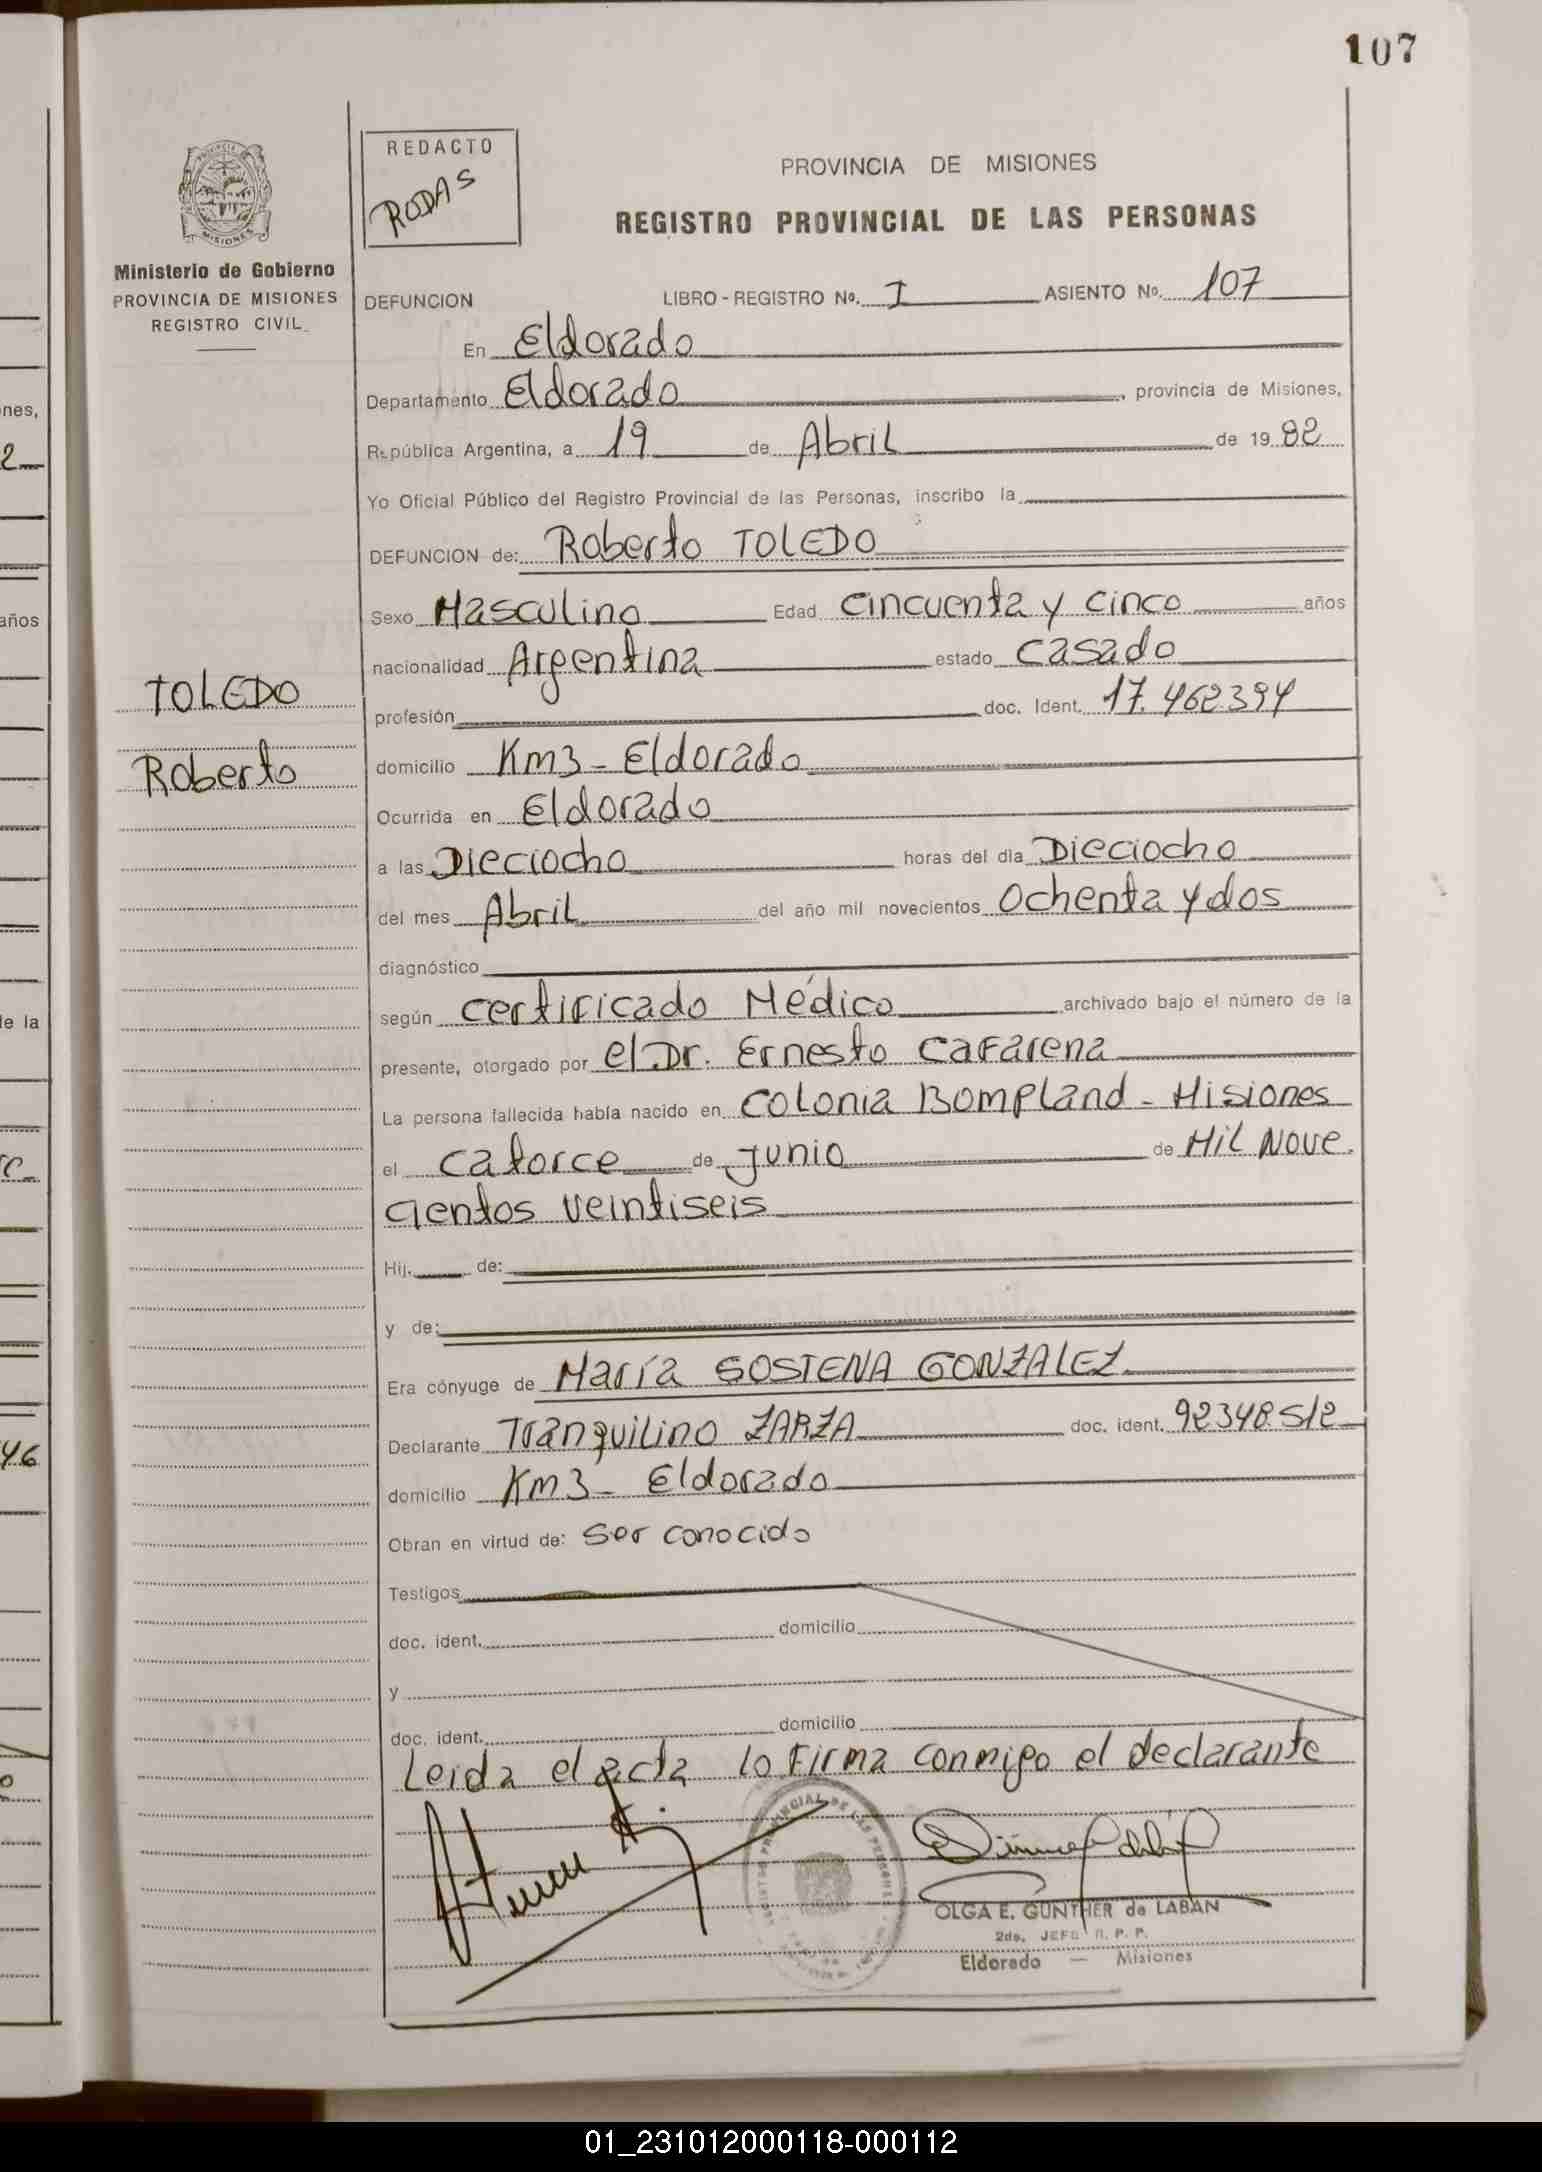 107
REDACTO
RODAS
PROVINCIA DE MISIONES
REGISTRO PROVINCIAL DE LAS PERSONAS
PROVINCIA DE
MISIONES
Ministerio de Gobierno
PROVINCIA DE MISIONES
REGISTRO CIVIL
DEFUNCION LIBRO - REGISTRO No. I ASIENTO No. 107
En Eldorado
Departamento Eldorado, provincia de Misiones,
República Argentina, a 19 de Abril de 19 82
Yo Oficial Público del Registro Provincial de las Personas, inscribo la
DEFUNCION de: Roberto TOLEDO
Sexo Masculino Edad cincuenta y cinco años
nacionalidad Argentina estado casado
TOLEDO
Roberto
profesión doc. Ident. 17.462.394
domicilio Km3 - Eldorado
Ocurrida en Eldorado
a las Dieciocho horas del día Dieciocho
del mes Abril del año mil novecientos Ochenta y dos
diagnóstico
según certificado Médico archivado bajo el número de la
presente, otorgado por el Dr. Ernesto Cafarena
La persona fallecida había nacido en Colonia Bompland - Misiones
el catorce de junio de Mil Nove.
cientos veintiseis
Hij. de:
y de:
Era cónyuge de María SOSTENA GONZALEZ
Declarante Tranquilino ZARZA doc. ident. 92348.512
domicilio Km 3 - Eldorado
Obran en virtud de: Ser conocido
Testigos
doc. ident. domicilio
y
doc. ident. domicilio
Leida el acta lo firma conmigo el declarante
OLGA E. GUNTHER de LABAN
2da. JEFE R. P. P.
Eldorado — Misiones
nes,
2
años
de la
46
01_231012000118-000112